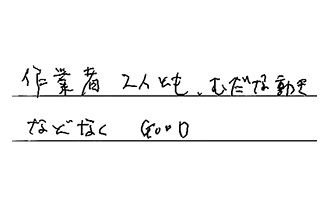 作業者 2人とも、むだな動き
などなく GOOD